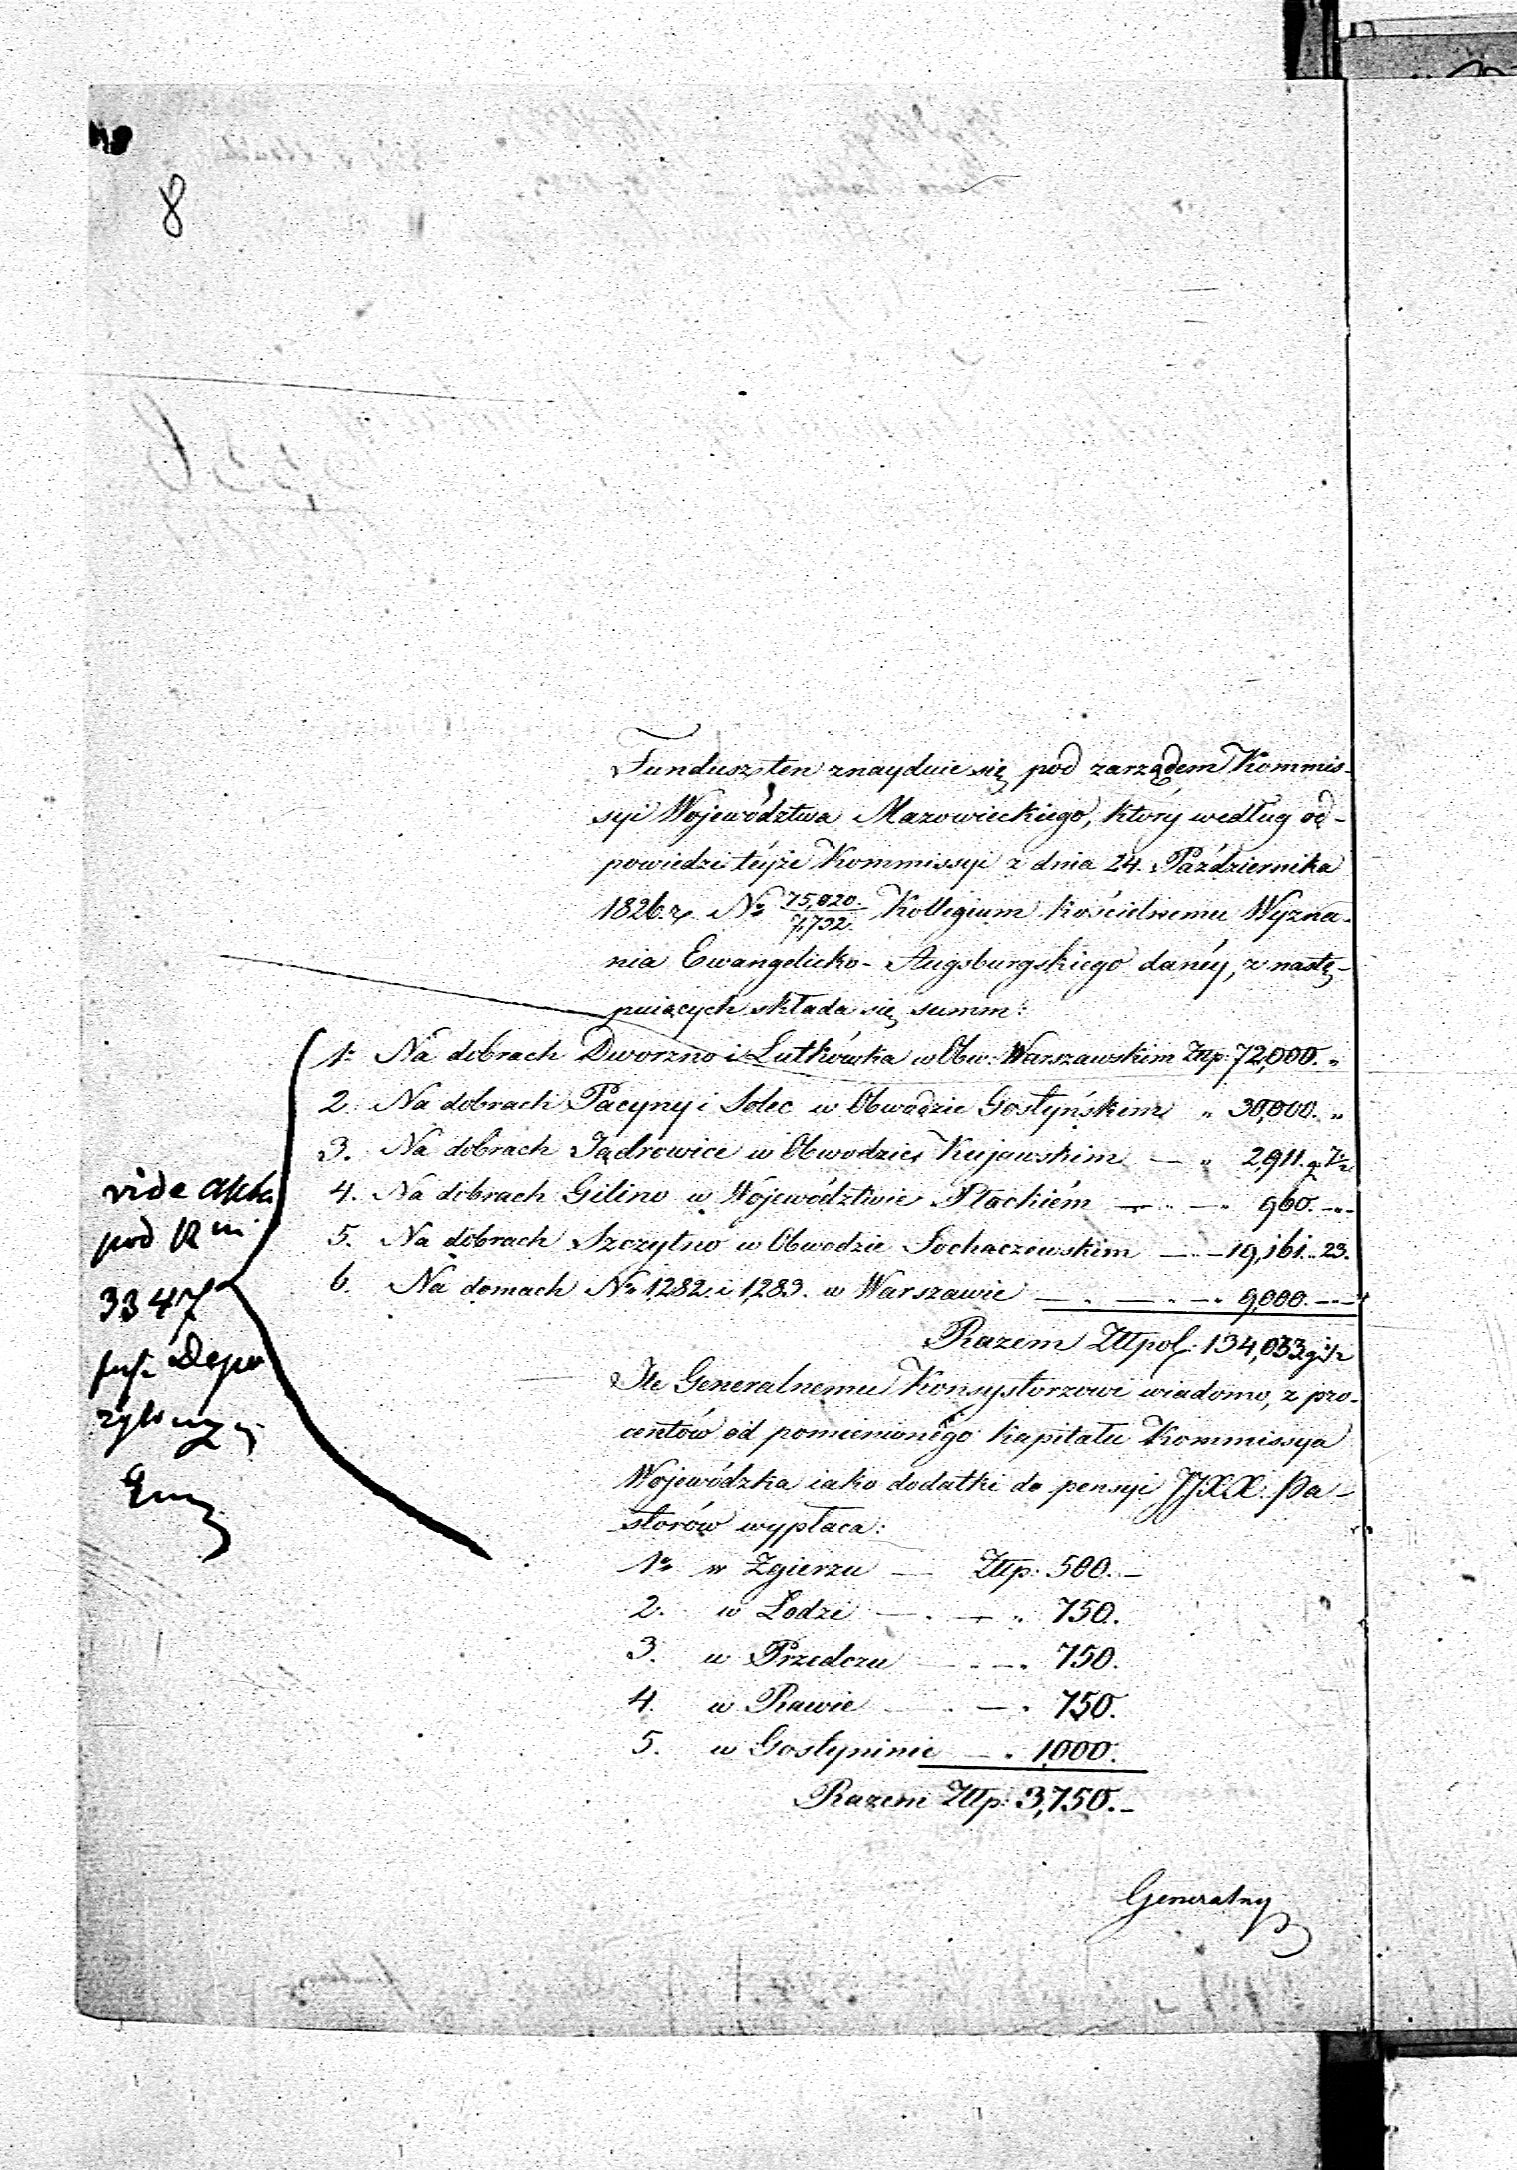 8
Fundusz ten znayduie się pod zarządem Kommis-
syi Województwa Mazowieckiego, który według od-
powiedzi teyże Kommissyi z dnia 24. Października
1826. r. No 75,020./7,732. Kollegium kościelnemu Wyzna-
nia Ewangelicko-Augsburgskiego daney, z nastę-
puiących składa się summ:
1o Na dobrach Dworzno i Lutkówka w Obw: Warszawskim Złp: 72,000. „
2. Na dobrach Pacyny i Solec w Obwodzie Gostyńskim „ 30,000. „
3. Na dobrach Jądrowice w Obwodzie Kujawskim — „ 2,911. g. 7½
4. Na dobrach Gilino w Województwie Płockiém — „ — „ 960. —
5. Na dobrach Szczytno w Obwodzie Sochaczewskim — „ — 19,161. „ 23.
6. Na domach No 1282. i 1283. w Warszawie — „ — „ — „ 9,000. —
Razem Złtpol: 134,033 g ½
Ile Generalnemu Konsystorzowi wiadomo, z pro-
centów od pomienionego kapitału Kommissya
Wojewódzka iako dodatki do pensyi JJXX. Pa-
storów wypłaca:
1o w Zgierzu — Złtp: 500. —
2. w Łodzi — „ — „ 750.
3. w Przedczu — „ — „ 750.
4. w Rawie — „ — „ 750.
5. w Gostyninie — „ 1,000.
Razem Złtp: 3,750. —
Generalny
vide akta
pod
3347
Depo
zyt